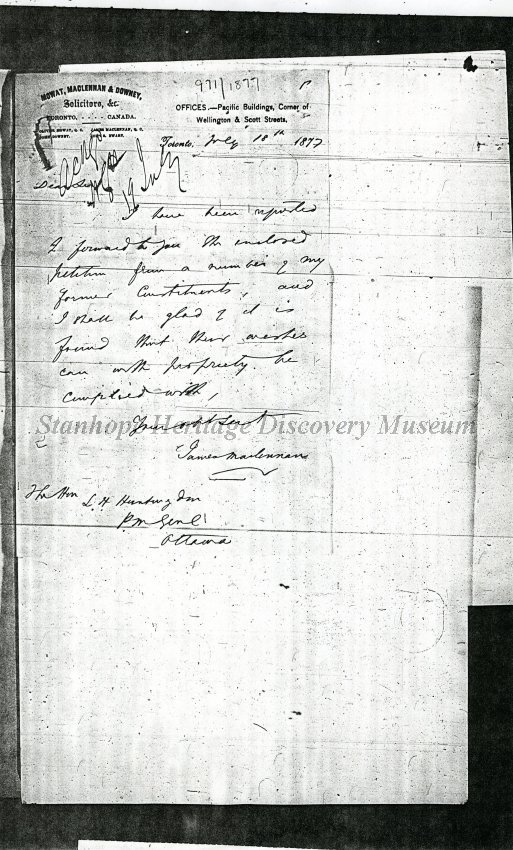 971/1877
MOWAT, MACLENNAN & DOWNEY,
Solicitors, &c.
TORONTO, . . . . . CANADA.
OLIVER MOWAT, Q. C. JAMES MACLENNAN, Q. C.
JOHN DOWNEY.
OFFICES.—Pacific Buildings, Corner of
Wellington & Scott Streets,
Toronto, July 18th 1877
19 July
Dear Sir
I have been requested
to forward to you the enclosed
petition from a number of my
former Constituents, and
I shall be glad if it is
found that their wishes
can with propriety be
complied with,
James Maclennan
The Hon
L. H. Huntingdon
P. M. Genl
Ottawa
Stanhope Heritage Discovery Museum